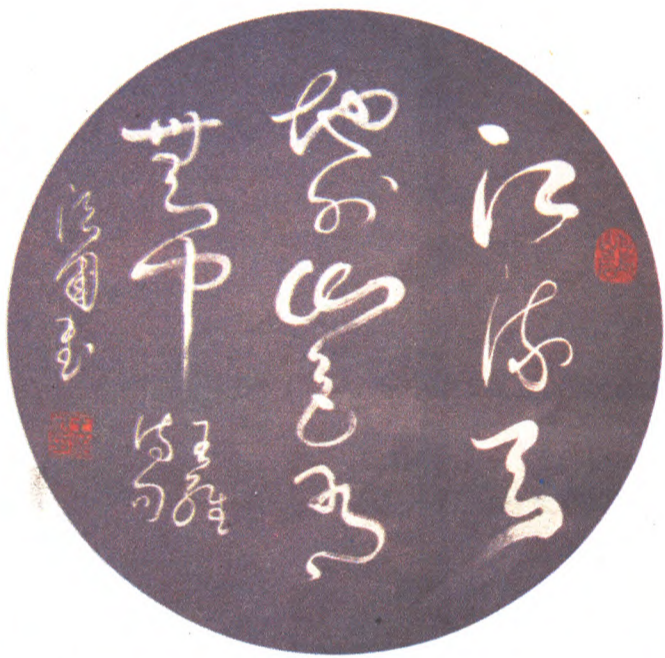 江流天
地外山色有
無中
王維
詩句